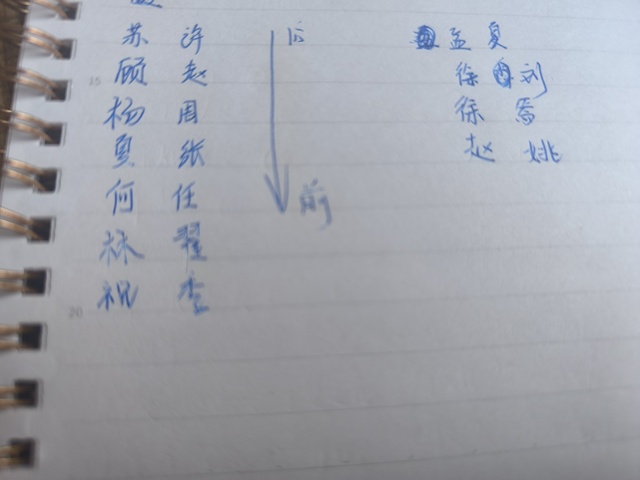 苏 许 后 孟 夏
15 顾 赵 徐 刘
杨 周 徐
夏 张 赵 姚
何 任 前
林 翟
祝 李
20